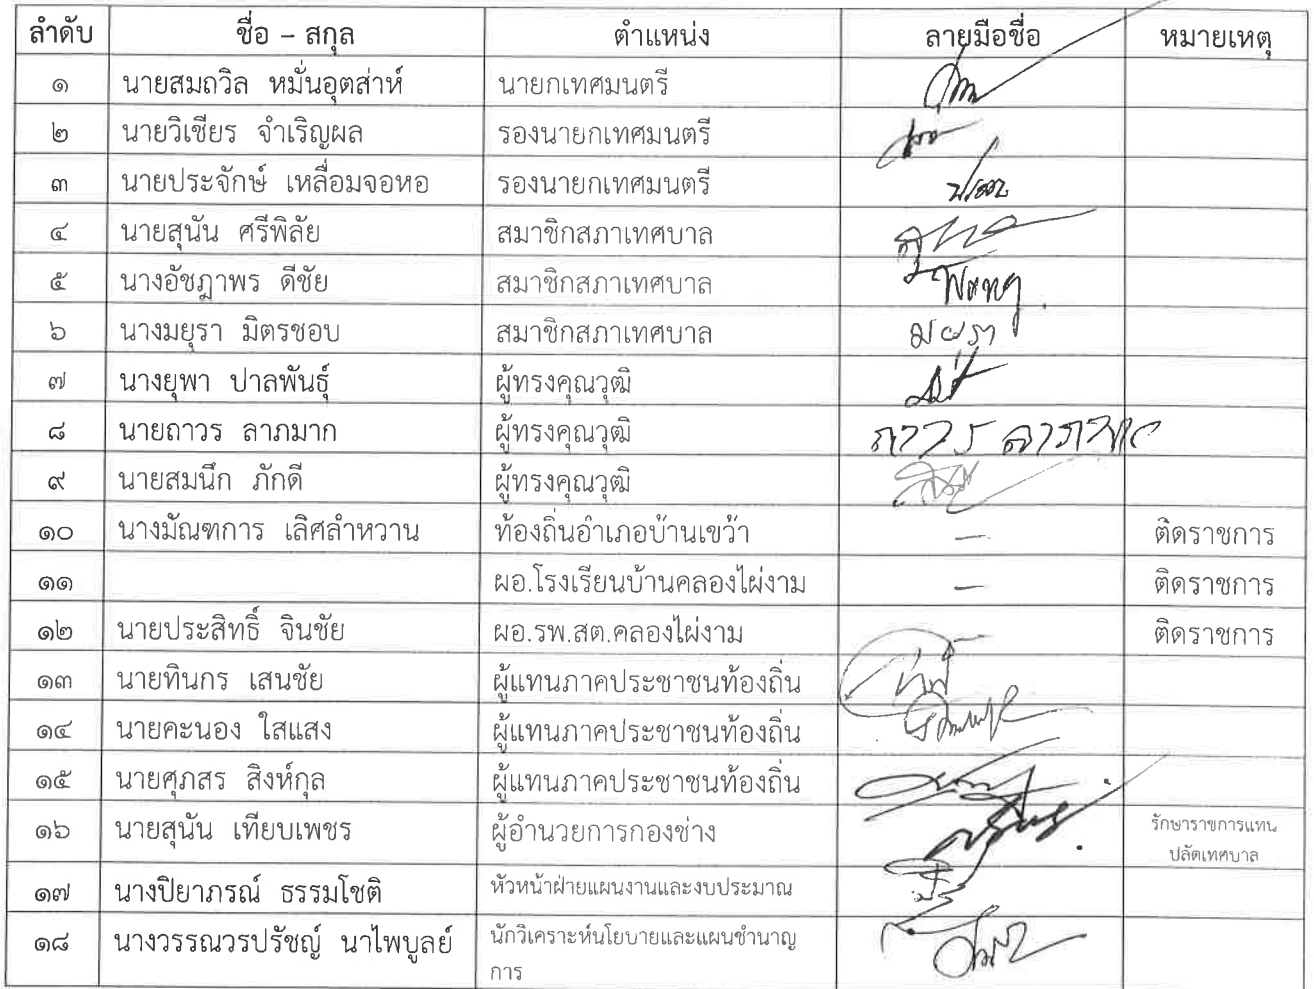 ลำดับ ชื่อ – สกุล ตำแหน่ง ลายมือชื่อ หมายเหตุ
๑ นายสมถวิล หมั่นอุตส่าห์ นายกเทศมนตรี
๒ นายวิเชียร จำเริญผล รองนายกเทศมนตรี
๓ นายประจักษ์ เหลื่อมจอหอ รองนายกเทศมนตรี
๔ นายสุนัน ศรีพิลัย สมาชิกสภาเทศบาล
๕ นางอัชฎาพร ดีชัย สมาชิกสภาเทศบาล
๖ นางมยุรา มิตรชอบ สมาชิกสภาเทศบาล มยุรา
๗ นางยุพา ปาลพันธุ์ ผู้ทรงคุณวุฒิ
๘ นายถาวร ลาภมาก ผู้ทรงคุณวุฒิ ถาวร ลาภมาก
๙ นายสมนึก ภักดี ผู้ทรงคุณวุฒิ
๑๐ นางมัณฑการ เลิศลำหวาน ท้องถิ่นอำเภอบ้านเขว้า – ติดราชการ
๑๑ ผอ.โรงเรียนบ้านคลองไผ่งาม – ติดราชการ
๑๒ นายประสิทธิ์ จินชัย ผอ.รพ.สต.คลองไผ่งาม ติดราชการ
๑๓ นายทินกร เสนชัย ผู้แทนภาคประชาชนท้องถิ่น
๑๔ นายคะนอง ใสแสง ผู้แทนภาคประชาชนท้องถิ่น
๑๕ นายศุภสร สิงห์กุล ผู้แทนภาคประชาชนท้องถิ่น
๑๖ นายสุนัน เทียบเพชร ผู้อำนวยการกองช่าง รักษาราชการแทน
ปลัดเทศบาล
๑๗ นางปิยาภรณ์ ธรรมโชติ หัวหน้าฝ่ายแผนงานและงบประมาณ
๑๘ นางวรรณวรปรัชญ์ นาไพบูลย์ นักวิเคราะห์นโยบายและแผนชำนาญ
การ